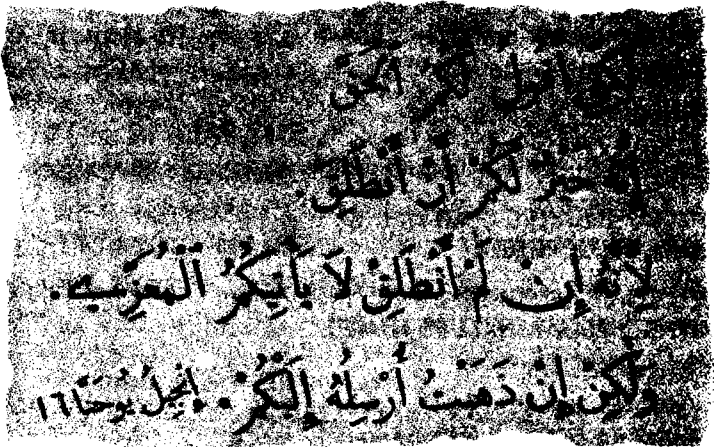 لكني أقول لكم الحق
إنه خير لكم أن أنطلق.
لأنه إن لم أنطلق لا يأتيكم المعزي.
ولكن إن ذهبت أرسله إليكم. إنجيل يوحنا ١٦